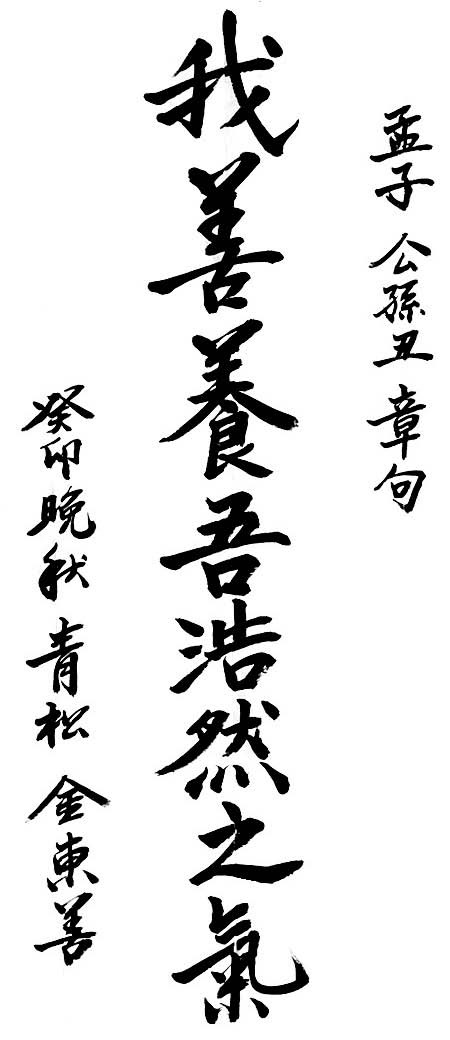 孟子 公孫丑 章句
我善養吾浩然之氣
癸卯晩秋 青松 金東善